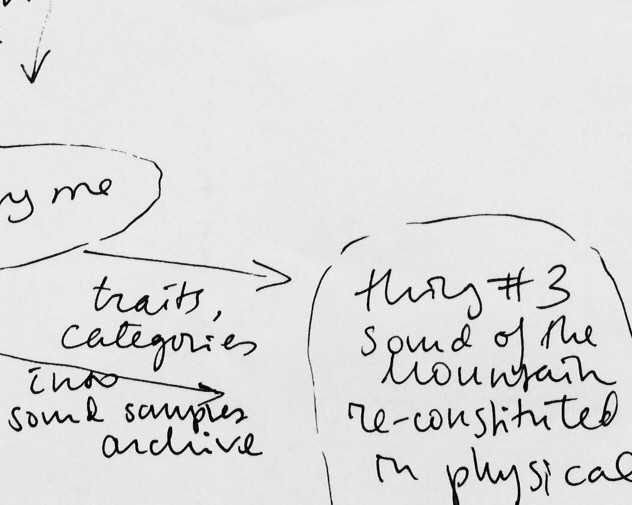 by me
traits,
categories
into
sound samples
archive
thing #3
sound of the
mountain
re-constituted
in physical